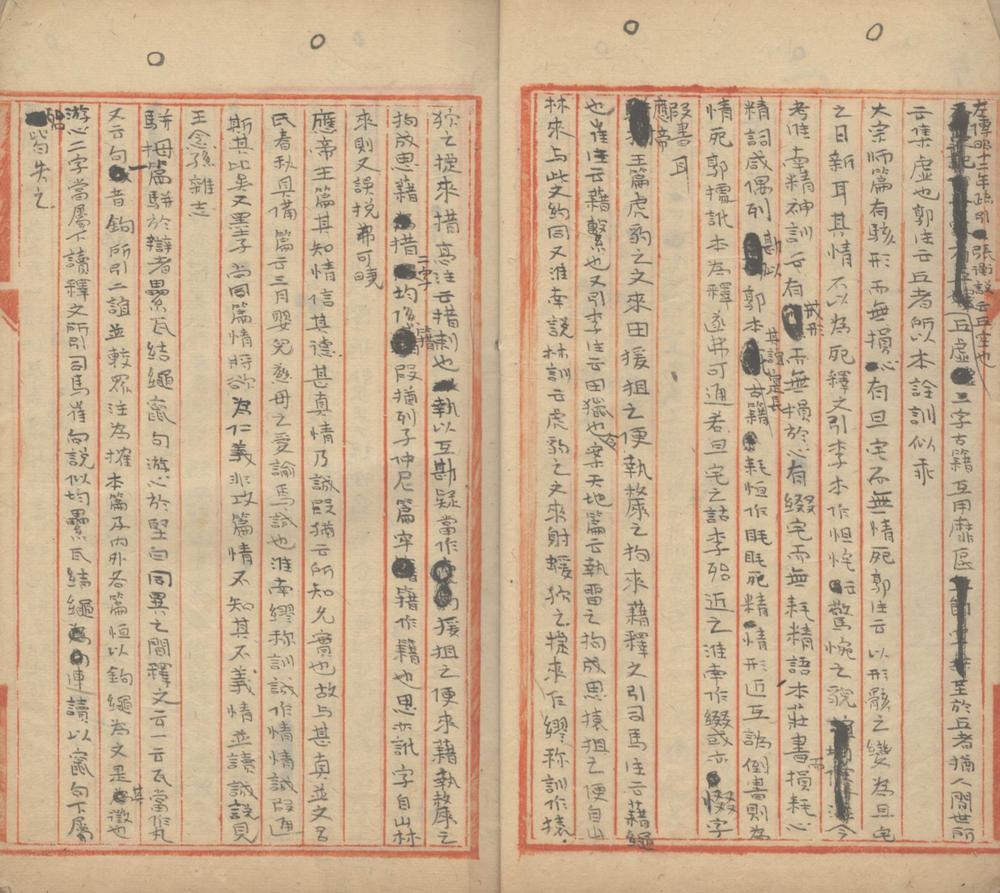 左傳昭十二年疏引張衡說云丘空也
丘虛二字古籍互用靡區至於丘者猶人間世所
云集虛也郭注云丘者所以本詮訓似乖
大宗師篇有駭形而無損心有旦宅而無情死郭注云以形骸之變為旦宅
之日新耳其情不以為死釋文引李本作怛恎云驚惋之貌今
考淮南精神訓云有戒形而無損於心有綴宅而無耗精語本莊書損耗心
精詞咸偶列勘似郭本其誼寔長古籍耗恒作眊眊死精情形近互譌倒書則為
情死郭據訛本為釋遂弗可通若旦宅之詁李殆近之淮南作綴或亦惙字
叚書耳
應帝王篇虎豹之文來田猨狙之便執斄之狗來藉釋文引司馬注云藉繩
也崔注云藉繫也又引李注云田獵也今案天地篇云執留之狗成思猿狙之便自山
林來與此文約同又淮南說林訓云虎豹之文來射蝯狖之捷來乍繆称訓作猿
狖之捷來措高注云措刺也執以互勘疑當作猨狙之便來藉執斄之
狗成思藉措二字均後籍叚猶列子仲尼篇宰籍作藉也思亦訛字自山林
來則又誤挩弗可曉
應帝王篇其知情信其德甚真情乃誠叚猶云所知允實也故与甚真並文呂
氏春秋具備篇云三月嬰兒慈母之愛諭焉誠也淮南繆称訓誠作情情誠叚通
斯其比矣又墨子尚同篇情將欲為仁義非攻篇情不知其不義情並讀誠說見
王念孫雜志
駢拇篇駢於辯者纍瓦結繩竄句游心於堅白同異之間釋文云一云瓦當作丸
又云句一音鉤所引二誼並較眾注為㩁本篇及內外各篇恒以鉤繩為文是其徵也
游心二字當屬下讀釋文所引司馬崔向說似均纍瓦結繩連讀以竄句下屬
殆皆失之